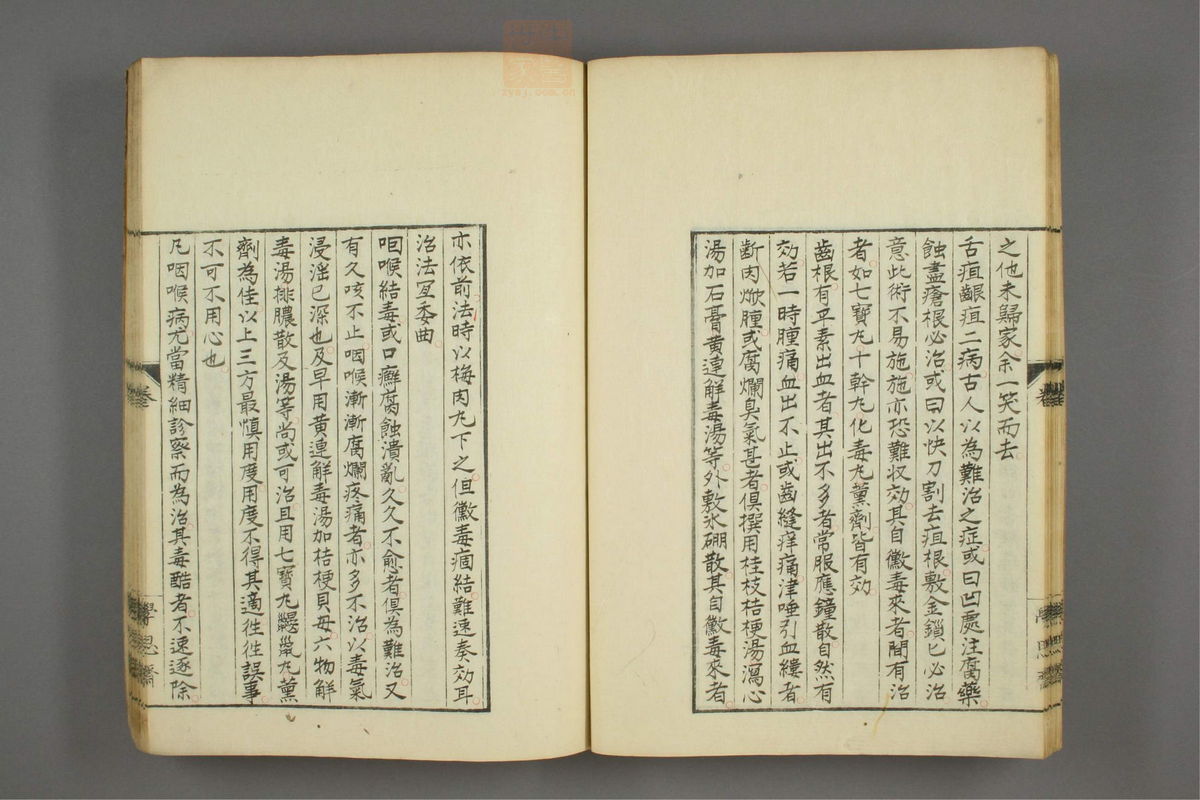 之他未歸家余一笑而去
舌疽齦疽二病古人以為難治之症或曰凹處注腐藥
蝕盡瘡根必治或曰以快刀割去疽根敷金鎖匕必治
意此術不易施施亦恐難収効其自黴毒來者間有治
者如七寶丸十幹丸化毒丸薰劑皆有効
齒根有平素出血者其出不多者常服應鐘散自然有
効若一時腫痛血出不止或齒縫痒痛津唾引血縷者
斷肉焮腫或腐爛臭氣甚者俱撰用桂枝桔梗湯瀉心
湯加石膏黃連解毒湯等外敷氷硼散其自黴毒來者
亦依前法時以梅肉丸下之但黴毒痼結難速奏効耳
治法冝委曲
咽喉結毒或口癬腐蝕潰亂久久不愈者俱為難治又
有久咳不止咽喉漸漸腐爛疼痛者亦多不治以毒氣
浸淫已深也及早用黃連解毒湯加桔梗貝母六物解
毒湯排膿散及湯等尚或可治且用七寶丸鼴鼠丸薰
劑為佳以上三方最慎用度用度不得其適徃徃誤事
不可不用心也
凡咽喉病尤當精細診察而為治其毒酷者不速逐除
卷
學思齋
zysj.com.cn